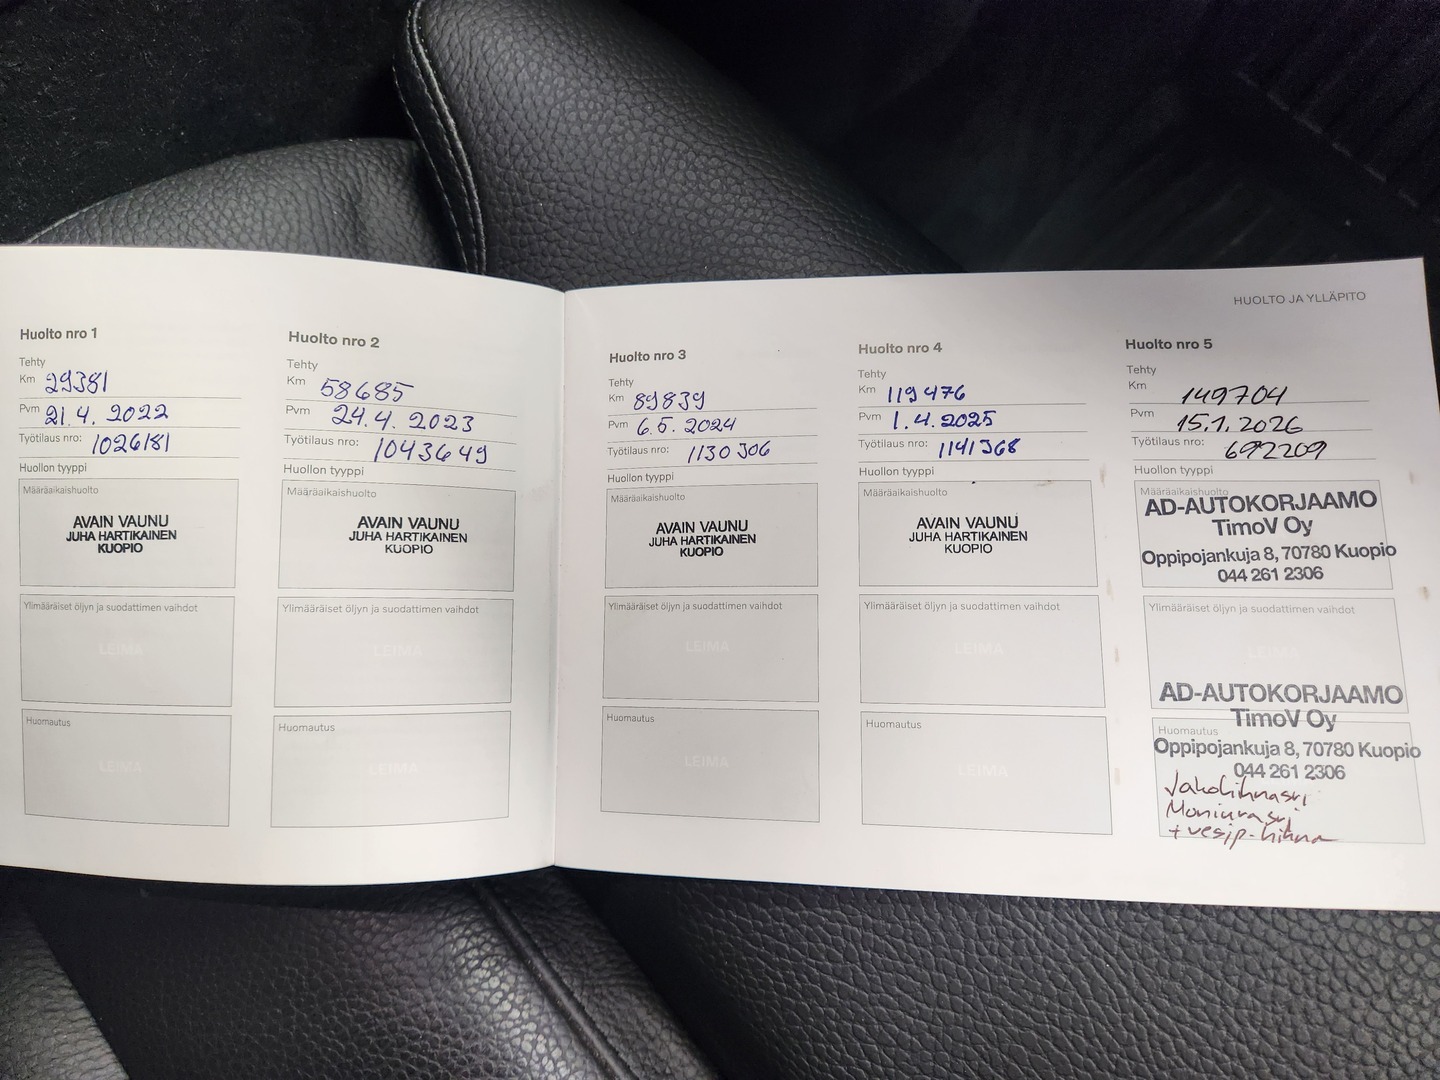 HUOLTO JA YLLÄPITO
Huolto nro 1
Tehty
Km 29381
Pvm 21.4. 2022
Työtilaus nro: 1026181
Huollon tyyppi
Määräaikaishuolto
AVAIN VAUNU
JUHA HARTIKAINEN
KUOPIO
Ylimääräiset öljyn ja suodattimen vaihdot
LEIMA
Huomautus
LEIMA
Huolto nro 2
Tehty
Km 58685
Pvm 24.4. 2023
Työtilaus nro: 1043649
Huollon tyyppi
Määräaikaishuolto
AVAIN VAUNU
JUHA HARTIKAINEN
KUOPIO
Ylimääräiset öljyn ja suodattimen vaihdot
LEIMA
Huomautus
LEIMA
Huolto nro 3
Tehty
Km 89839
Pvm 6.5. 2024
Työtilaus nro: 1130306
Huollon tyyppi
Määräaikaishuolto
AVAIN VAUNU
JUHA HARTIKAINEN
KUOPIO
Ylimääräiset öljyn ja suodattimen vaihdot
LEIMA
Huomautus
LEIMA
Huolto nro 4
Tehty
Km 119476
Pvm 1.4.2025
Työtilaus nro: 1141368
Huollon tyyppi
Määräaikaishuolto
AVAIN VAUNU
JUHA HARTIKAINEN
KUOPIO
Ylimääräiset öljyn ja suodattimen vaihdot
LEIMA
Huomautus
LEIMA
Huolto nro 5
Tehty
Km 149704
Pvm 15.1.2026
Työtilaus nro: 692209
Huollon tyyppi
Määräaikaishuolto
AD-AUTOKORJAAMO
TimoV Oy
Oppipojankuja 8, 70780 Kuopio
044 261 2306
Ylimääräiset öljyn ja suodattimen vaihdot
LEIMA
AD-AUTOKORJAAMO
TimoV Oy
Huomautus
Oppipojankuja 8, 70780 Kuopio
044 261 2306
Jakohihnasrj
Moniurasrj
+ vesip-hihna